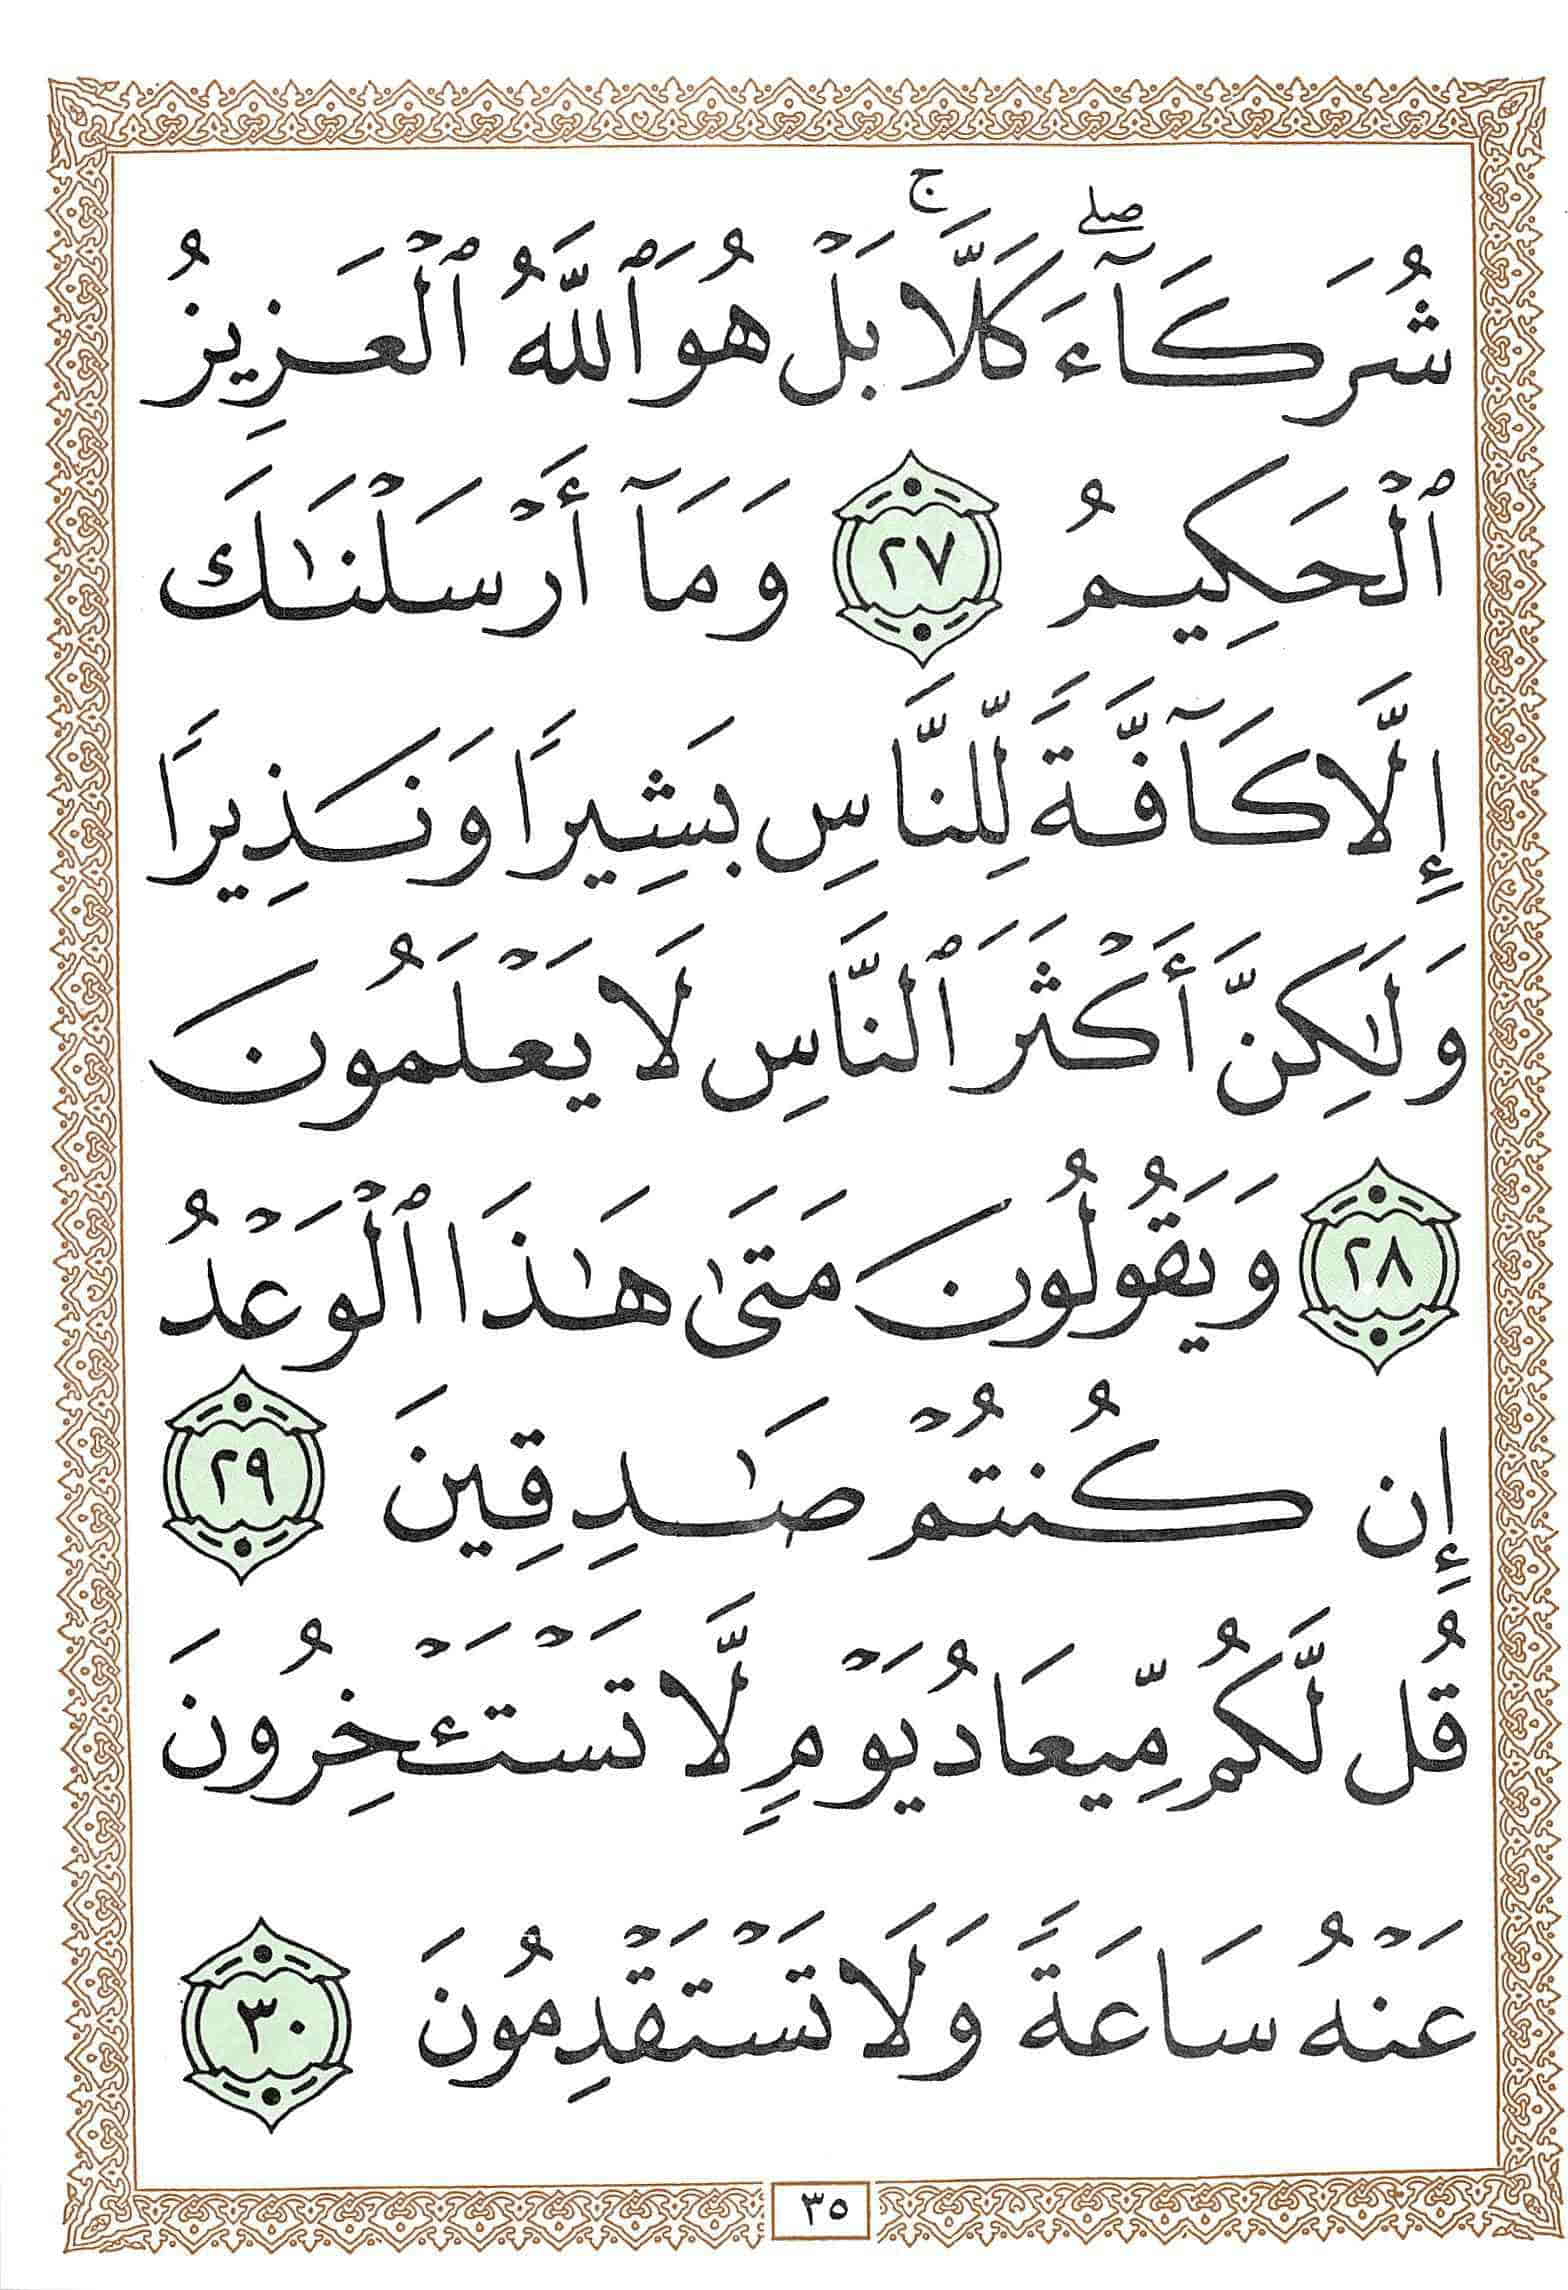 شُرَكَآءَۖ كَلَّاۚ بَلۡ هُوَ ٱللَّهُ ٱلۡعَزِيزُ
ٱلۡحَكِيمُ ٢٧ وَمَآ أَرۡسَلۡنَٰكَ
إِلَّا كَآفَّةً لِّلنَّاسِ بَشِيرًا وَنَذِيرًا
وَلَٰكِنَّ أَكۡثَرَ ٱلنَّاسِ لَا يَعۡلَمُونَ
٢٨ وَيَقُولُونَ مَتَىٰ هَٰذَا ٱلۡوَعۡدُ
إِن كُنتُمۡ صَٰدِقِينَ ٢٩
قُل لَّكُم مِّيعَادُ يَوۡمٍ لَّا تَسۡتَـٔۡخِرُونَ
عَنۡهُ سَاعَةً وَلَا تَسۡتَقۡدِمُونَ ٣٠
٣٥